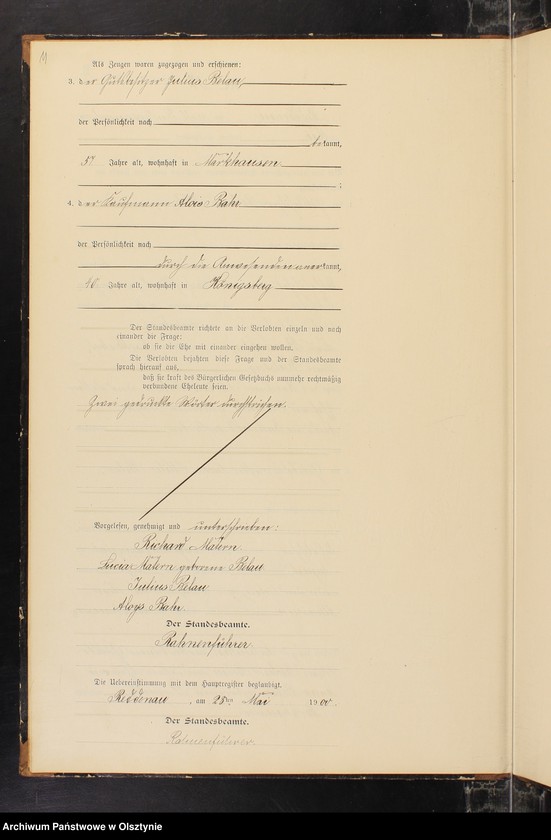 Als Zeugen waren zugezogen und erschienen:
3. der Gutsbesitzer Julius Belau,
der Persönlichkeit nach
bekannt,
Jahre alt, wohnhaft in Markhausen
;
4. der Kaufmann Alois Bahr
der Persönlichkeit nach
durch die Anwesenden anerkannt,
Jahre alt, wohnhaft in Königsberg
Der Standesbeamte richtete an die Verlobten einzeln und nach
einander die Frage:
ob sie die Ehe mit einander eingehen wollen.
Die Verlobten bejahten diese Frage und der Standesbeamte
sprach hierauf aus,
daß sie kraft des Bürgerlichen Gesetzbuchs nunmehr rechtmäßig
verbundene Eheleute seien.
Zwei gedruckte Wörter durchstrichen.
Vorgelesen, genehmigt und unterschrieben:
Richard Matern
Lucia Matern geborene Belau
Julius Belau
Aloys Bahr
Der Standesbeamte.
Rahnenführer
Die Uebereinstimmung mit dem Hauptregister beglaubigt.
Reddenau, am 28ten Mai 1900.
Der Standesbeamte.
Rahnenführer
Archiwum Państwowe w Olsztynie